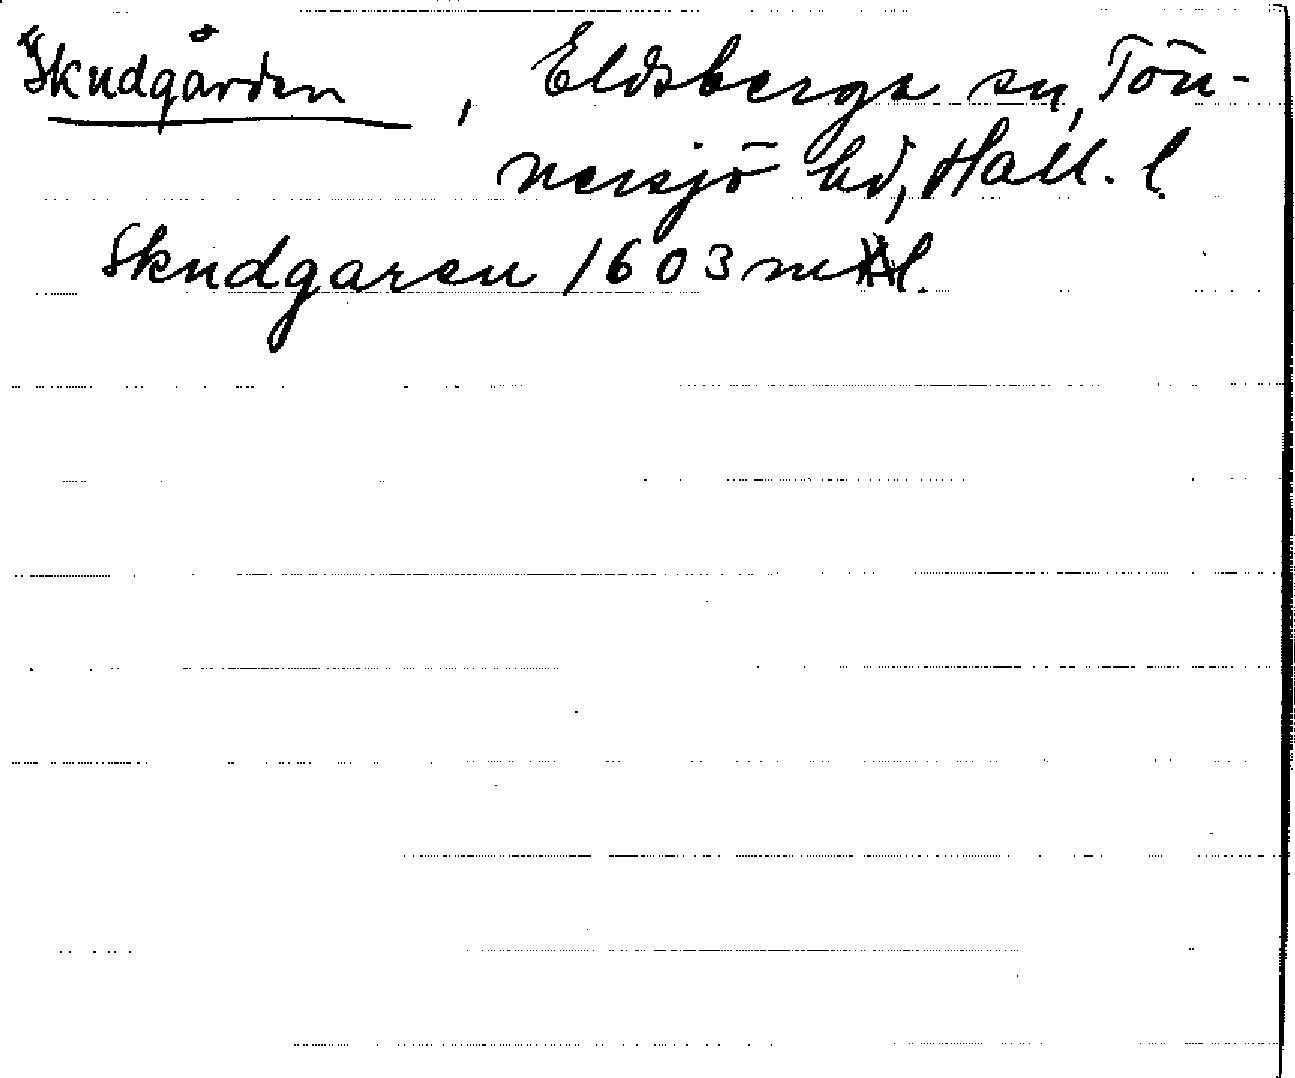 *Skudgården, Eldsberga sn, Tön-
nersjö hd, Hall. l.
Skudgaren 1603 mtl.